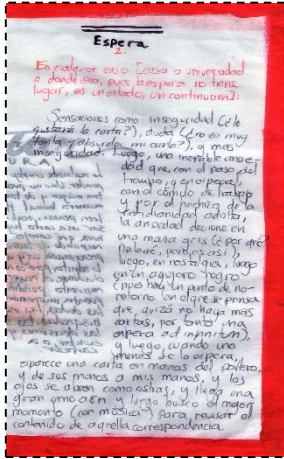 Espera
2.
En cualquier caso [casa o universidad
o donde sea, pues la espera no tiene
lugar, es un estado, un continuum]:
Sensaciones como: inseguridad (¿le
gustará la carta?), duda (¿no es muy
tonta y absurda mi carta?), y más
inseguridad. Luego, una increíble ansie-
dad que, con el paso del
tiempo, y en el peor,
con el cúmulo de trabajo
y por el
cotidianidad adulta,
la ansiedad deviene en
una masa gris (¿por qué?
no lo sé, pero es así),
luego, en nostalgia, luego
en un agujero negro
(pues hay un punto de no-
retorno en el que se piensa
que, quizá no haya más
cartas, por tanto una
espera ad infinitum),
y luego, cuando uno
menos se lo espera,
aparece una carta en manos del portero,
y de sus manos a mis manos, y los
ojos se abren como ostras, y llega una
gran emoción y luego busco el mejor
momento (con música) para revisar el
contenido de aquella correspondencia.